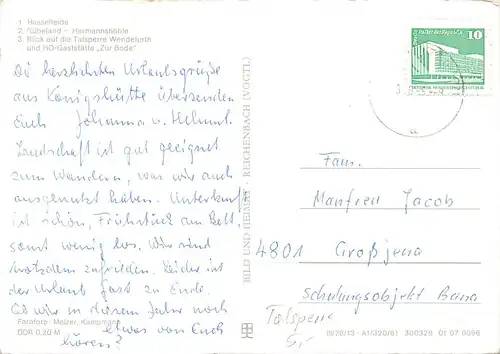 1. Hasselfelde
2. Rübeland - Hermannshöhle
3. Blick auf die Talsperre Wendefurth
und HO-Gaststätte „Zur Bode"
Palast der Republik
10
Die herzlichsten Urlaubsgrüße
aus Königshütte übersenden
Euch Johanna u. Helmut.
Landschaft ist gut geeignet
zum Wandern, was wir auch
ausgenutzt haben. Unterkunft
ist schön, Frühstück am Bett,
sonst wenig los. Wir sind
trotzdem zufrieden. Leider ist
der Urlaub fast zu Ende.
Ob wir in diesem Jahr noch
etwas von Euch
hören?
Farbfoto: Melzer, Kampmann
DDR 0,20 M
BILD UND HEIMAT REICHENBACH (VOGTL)
Fam.
Manfred Jacob
4801 Großjena
Schulungsobjekt
Talsperre
5,-
III/26/13 A1/320/81 300320 01 07 0056